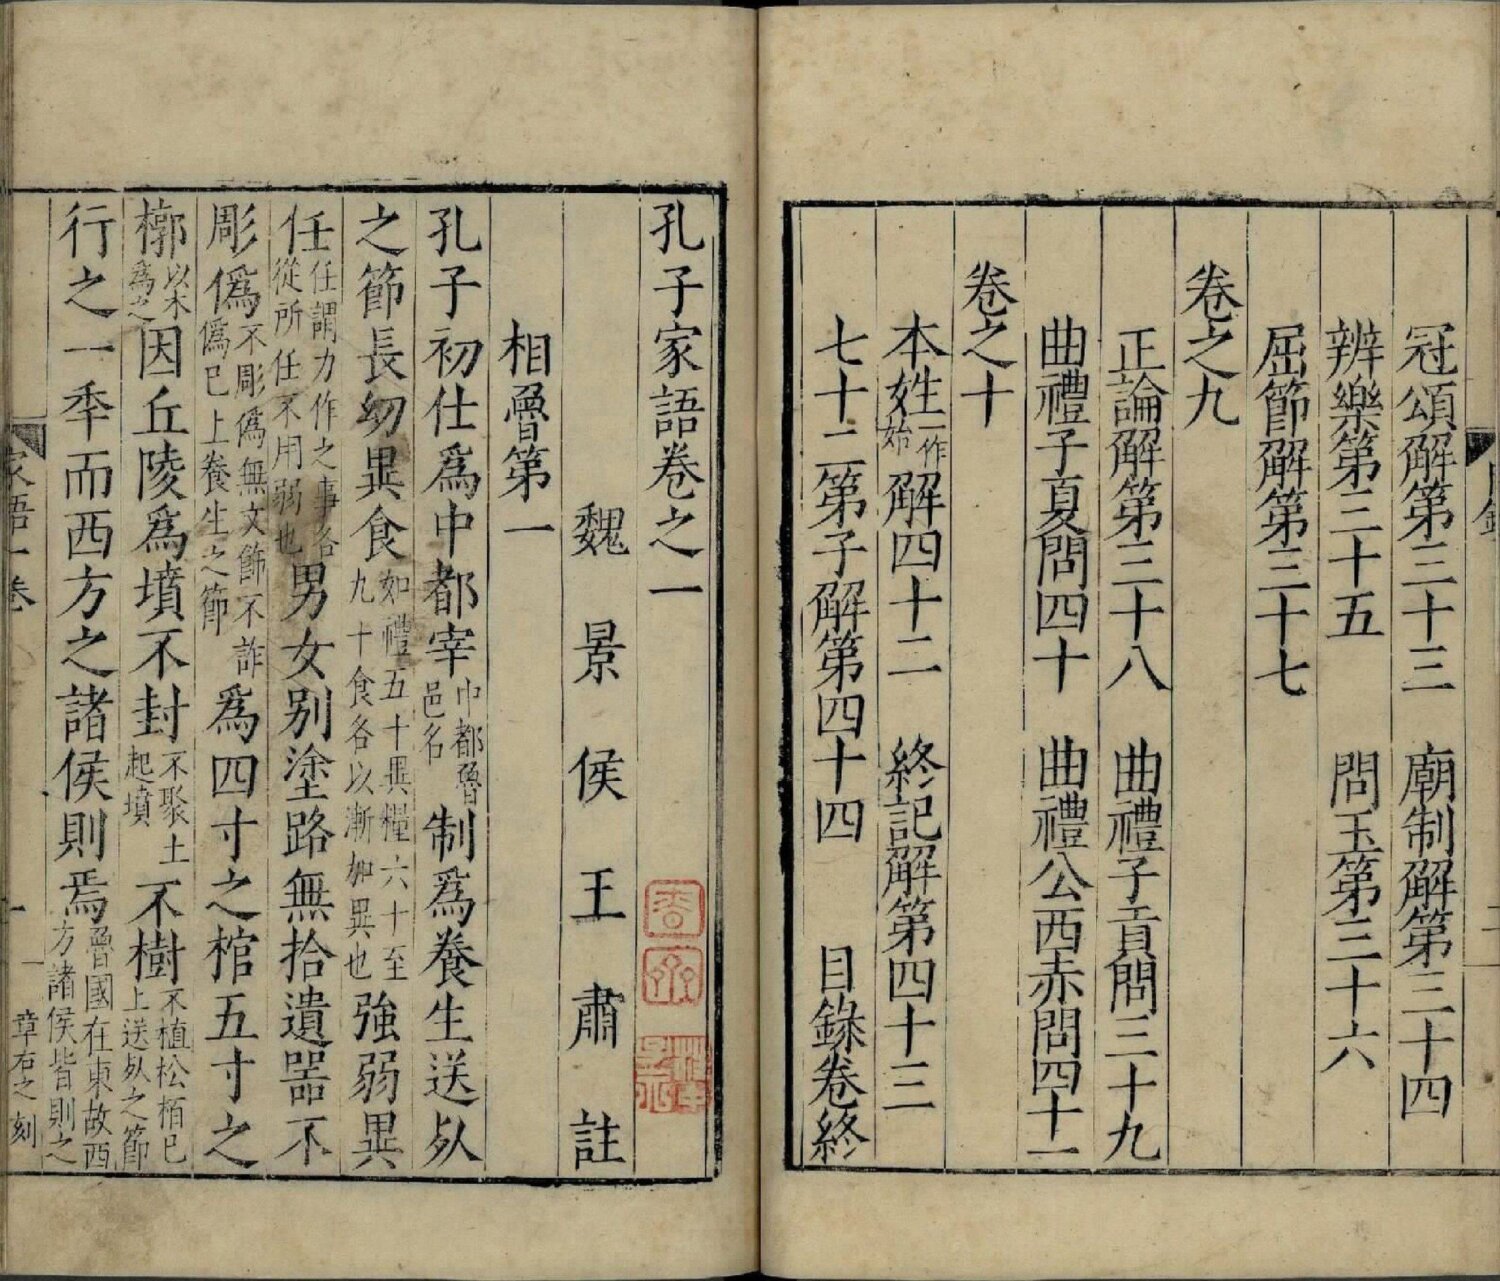 冠頌解第三十三　廟制解第三十四
辨樂第三十五　問玉第三十六
屈節解第三十七
卷之九
正論解第三十八　曲禮子貢問三十九
曲禮子夏問四十　曲禮公西赤問四十一
卷之十
本姓一作始解四十二　終記解第四十三
七十二第子解第四十四　目錄卷終
孔子家語卷之一
魏景侯王肅註
相魯第一
孔子初仕爲中都宰中都魯邑名制爲養生送死
之節長幼異食如禮五十異糧六十至九十食各以漸加異也強弱異
任任謂力作之事各從所任不用弱也男女別塗路無拾遺器不
彫僞不彫僞無文飾不詐僞已上養生之節爲四寸之棺五寸之
槨以木爲之因丘陵爲墳不封不聚土起墳不樹不植松栢已上送死之節
行之一年而西方之諸侯則焉魯國在東故西方諸侯皆則之
家語一卷
一
章右之刻